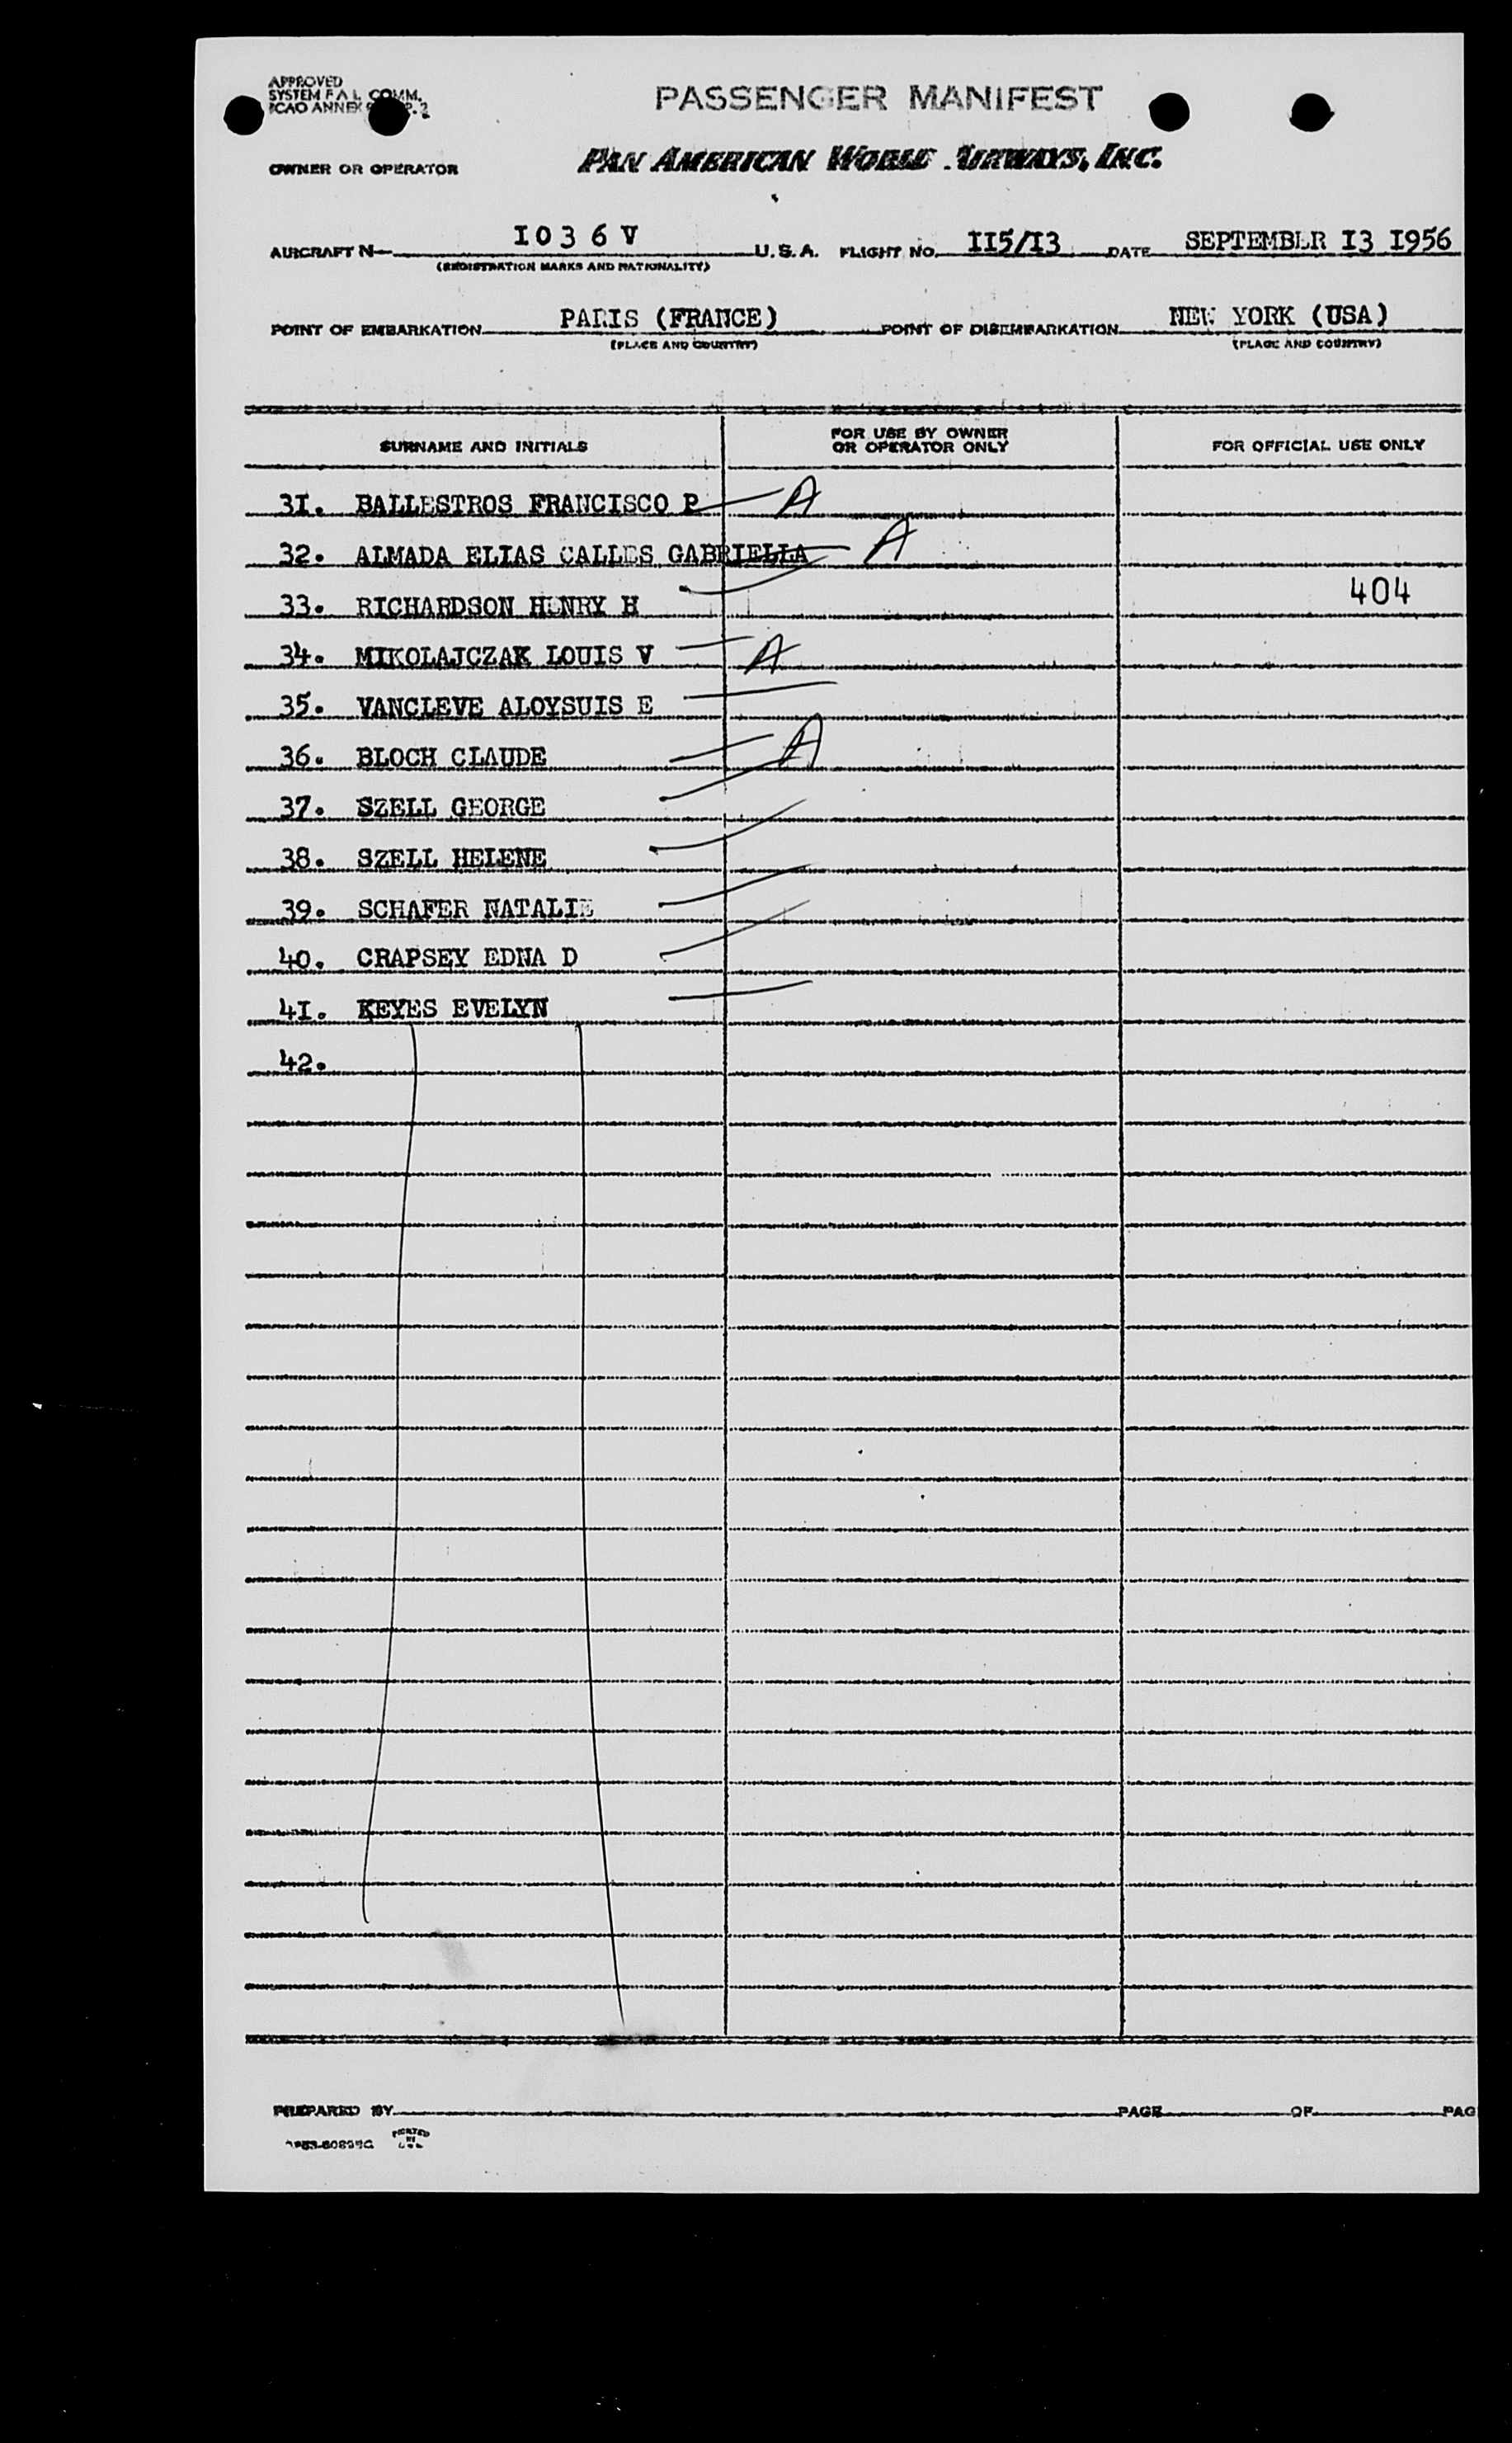 APPROVED
SYSTEM F A L COMM.
ICAO ANNEX 9 P. 2
PASSENGER MANIFEST
OWNER OR OPERATOR PAN AMERICAN WORLD AIRWAYS, INC.
AIRCRAFT N— I036V U.S.A. FLIGHT NO. II5/I3 DATE SEPTEMBER I3 I956
(REGISTRATION MARKS AND NATIONALITY)
POINT OF EMBARKATION PARIS (FRANCE) POINT OF DISEMBARKATION NEW YORK (USA)
(PLACE AND COUNTRY) (PLACE AND COUNTRY)
SURNAME AND INITIALS FOR USE BY OWNER OR OPERATOR ONLY FOR OFFICIAL USE ONLY
3I. BALLESTROS FRANCISCO P A
32. ALMADA ELIAS CALLES GABRIELLA A
33. RICHARDSON HENRY H 404
34. MIKOLAJCZAK LOUIS V A
35. VANCLEVE ALOYSUIS E
36. BLOCH CLAUDE A
37. SZELL GEORGE
38. SZELL HELENE
39. SCHAFER NATALIE
40. CRAPSEY EDNA D
4I. KEYES EVELYN
42.
PREPARED BY PAGE OF PAG
PRINTED
IN